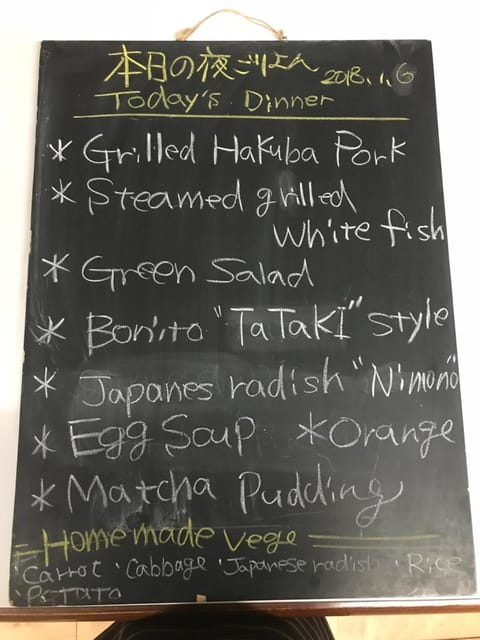 本日の夜ごはん 2018.1.6
Today's Dinner
* Grilled Hakuba Pork
* Steamed grilled
White fish
* Green Salad
* Bonito "TaTaKI" style
* Japanes radish "Nimono"
* Egg Soup *Orange
* Matcha Pudding
= Homemade vege =
Carrot ・Cabbage ・Japanese radish ・Rice
・Potato